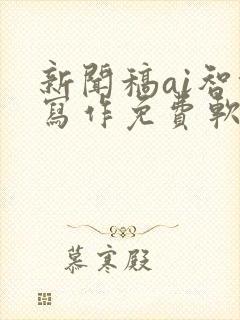 新聞稿ai智
寫作免費軟
慕寒殿